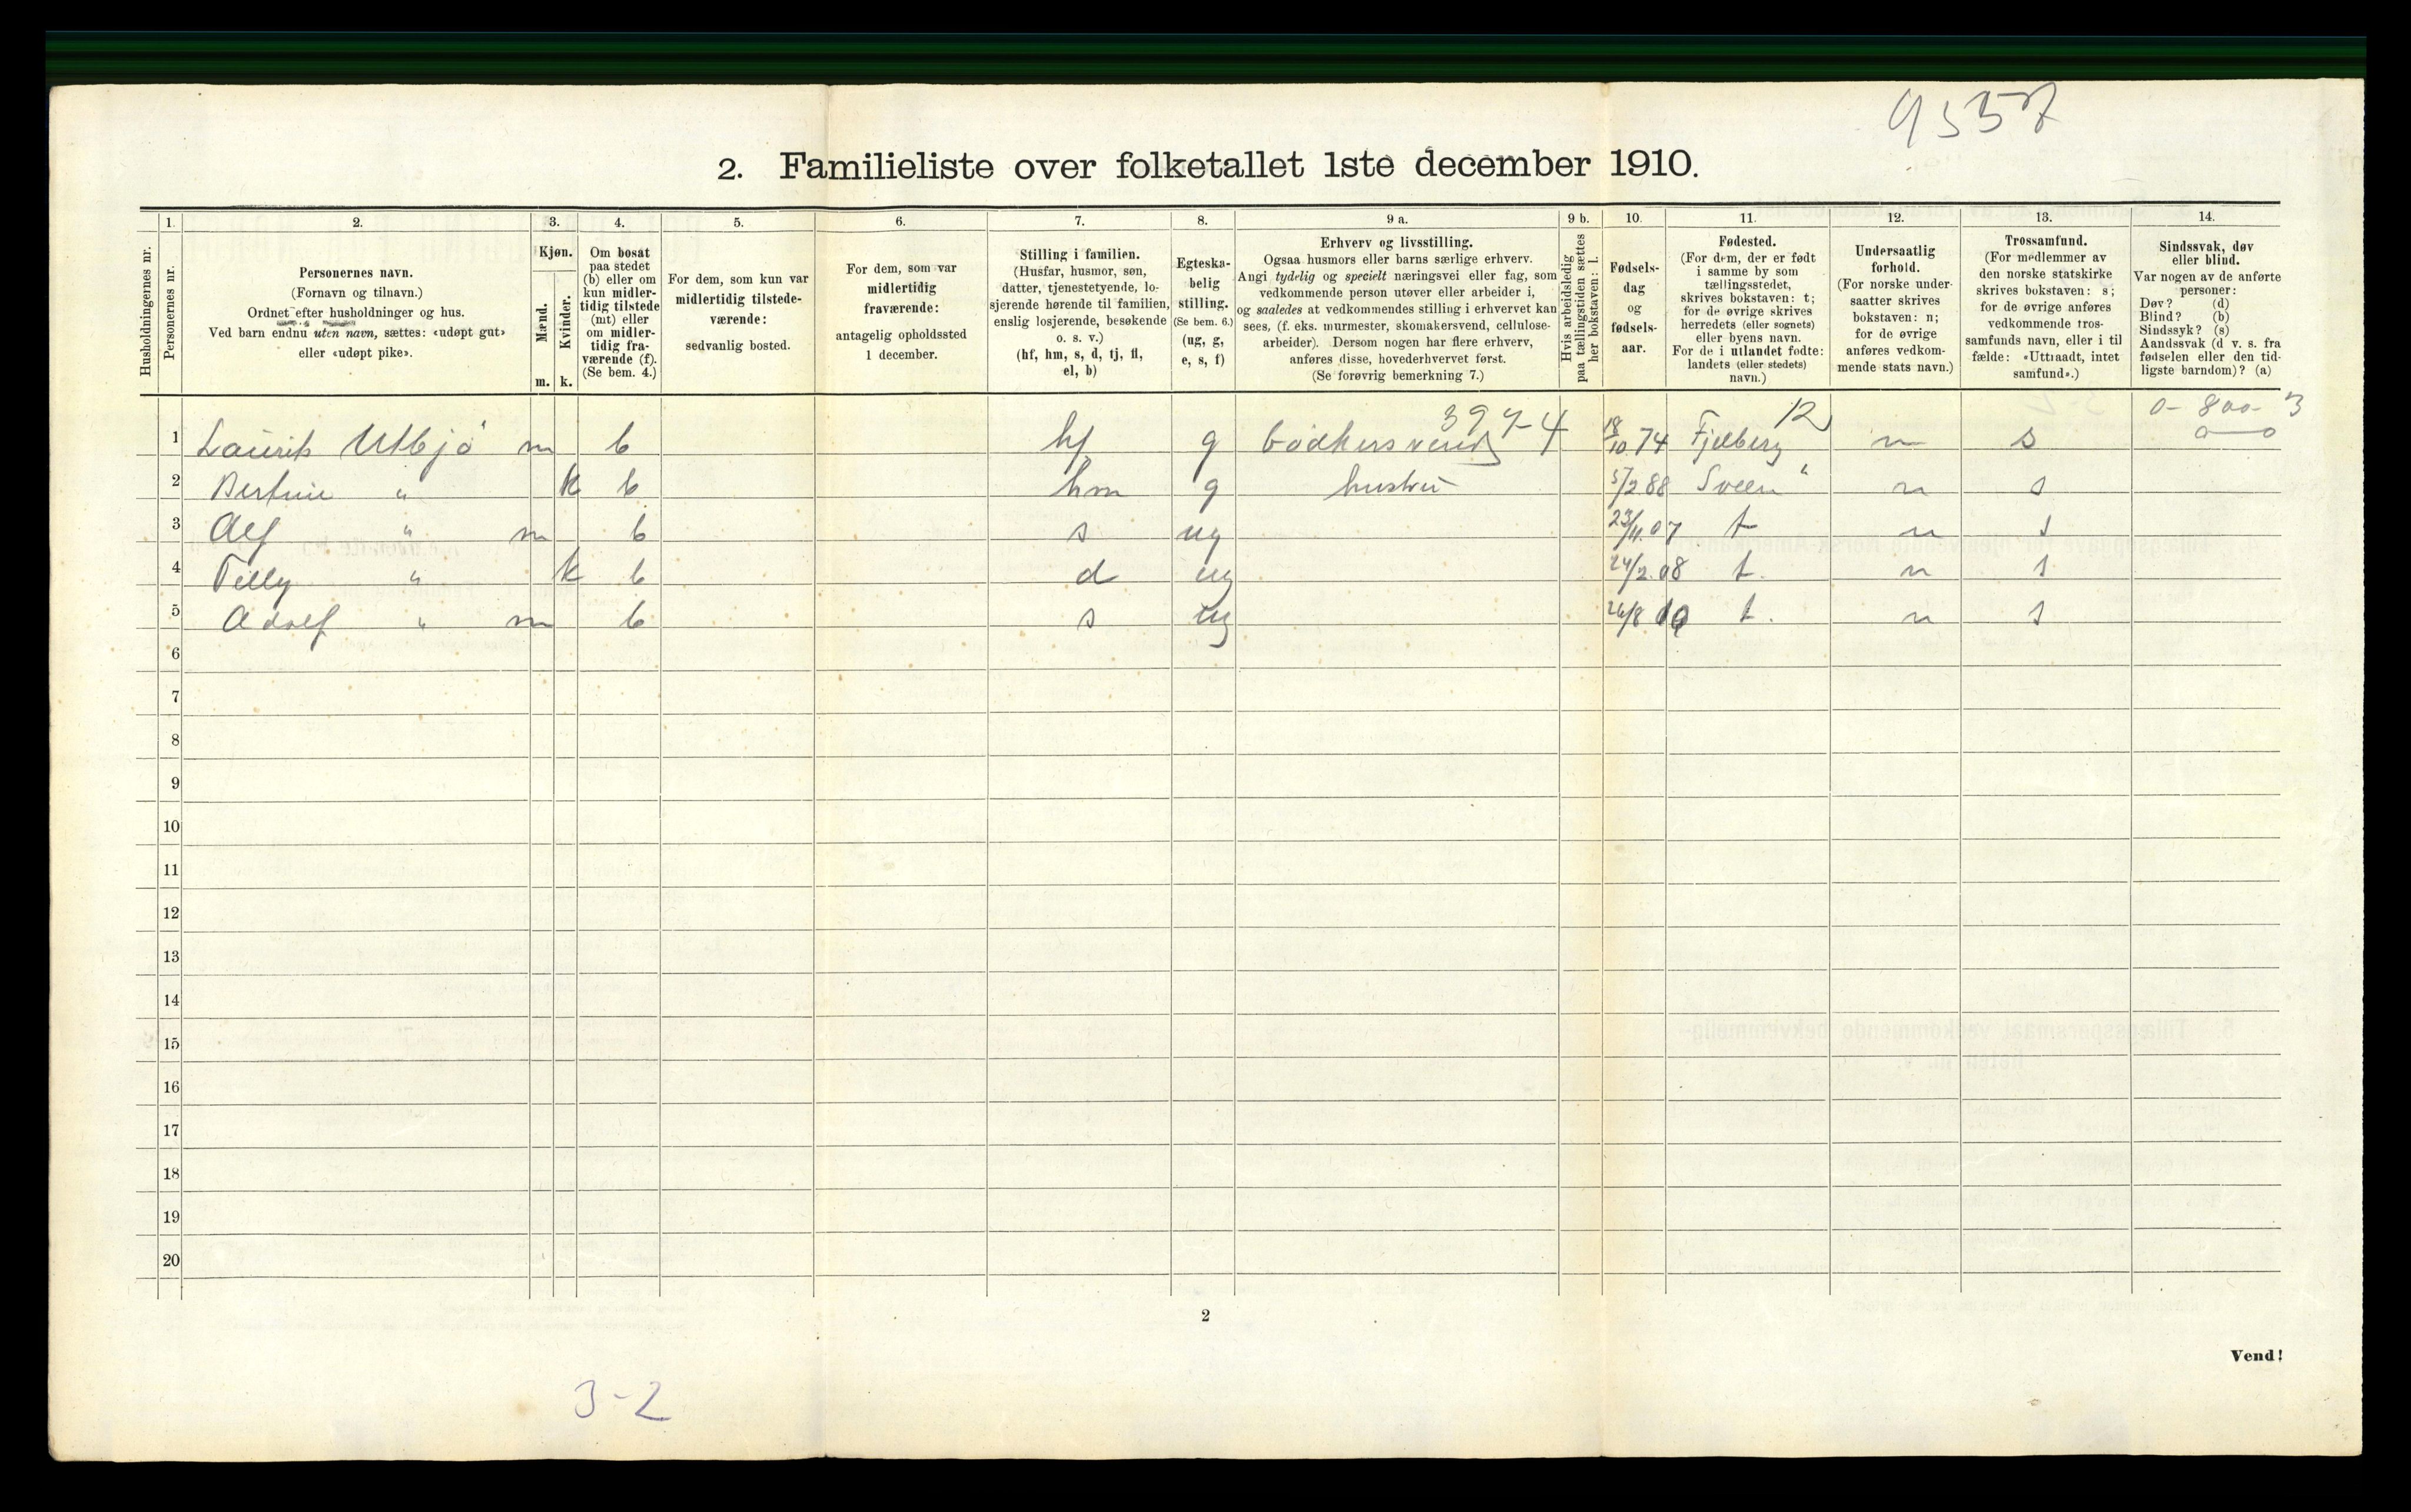 9557
2. Familieliste over folketallet 1ste december 1910.
Husholdningernes nr.
1. Personernes nr.
2. Personernes navn. (Fornavn og tilnavn.) Ordnet efter husholdninger og hus. Ved barn endnu uten navn, sættes: «udøpt gut» eller «udøpt pike».
3. Kjøn. Mænd. m. Kvinder. k.
4. Om bosat paa stedet (b) eller om kun midlertidig tilstede (mt) eller om midlertidig fraværende (f). (Se bem. 4.)
5. For dem, som kun var midlertidig tilstedeværende: sedvanlig bosted.
6. For dem, som var midlertidig fraværende: antagelig opholdssted 1 december.
7. Stilling i familien. (Husfar, husmor, søn, datter, tjenestetyende, losjerende hørende til familien, enslig losjerende, besøkende o. s. v.) (hf, hm, s, d, tj, fl, el, b)
8. Egteskabelig stilling. (Se bem. 6.) (ug, g, e, s, f)
9 a. Erhverv og livsstilling. Ogsaa husmors eller barns særlige erhverv. Angi tydelig og specielt næringsvei eller fag, som vedkommende person utøver eller arbeider i, og saaledes at vedkommendes stilling i erhvervet kan sees, (f. eks. murmester, skomakersvend, cellulosearbeider). Dersom nogen har flere erhverv, anføres disse, hovederhvervet først. (Se forøvrig bemerkning 7.)
9 b. Hvis arbeidsledig paa tællingstiden sættes her bokstaven: l.
10. Fødselsdag og fødselsaar.
11. Fødested. (For dem, der er født i samme by som tællingsstedet, skrives bokstaven: t; for de øvrige skrives herredets (eller sognets) eller byens navn. For de i utlandet fødte: landets (eller stedets) navn.)
12. Undersaatlig forhold. (For norske undersaatter skrives bokstaven: n; for de øvrige anføres vedkommende stats navn.)
13. Trossamfund. (For medlemmer av den norske statskirke skrives bokstaven: s; for de øvrige anføres vedkommende trossamfunds navn, eller i tilfælde: «Uttraadt, intet samfund».)
14. Sindssvak, døv eller blind. Var nogen av de anførte personer: Døv? (d) Blind? (b) Sindssyk? (s) Aandssvak (d v. s. fra fødselen eller den tidligste barndom)? (a)
397-4 12 0-800-3
1 Laurits Utbjø m b hf g bødkersvend 18/10 74 Fjelberg n s 0-0
2 Bertine " k b hm g hustru 5/2 88 Sveen " n s
3 Alf " m b s ug 23/11.07 t n s
4 Tilly " k b d ug 24/2.08 t. n s
5 Adolf " m b s ug 26/8 t. n s
6
7
8
9
10
11
12
13
14
15
16
17
18
19
20
2
Vend!
3-2